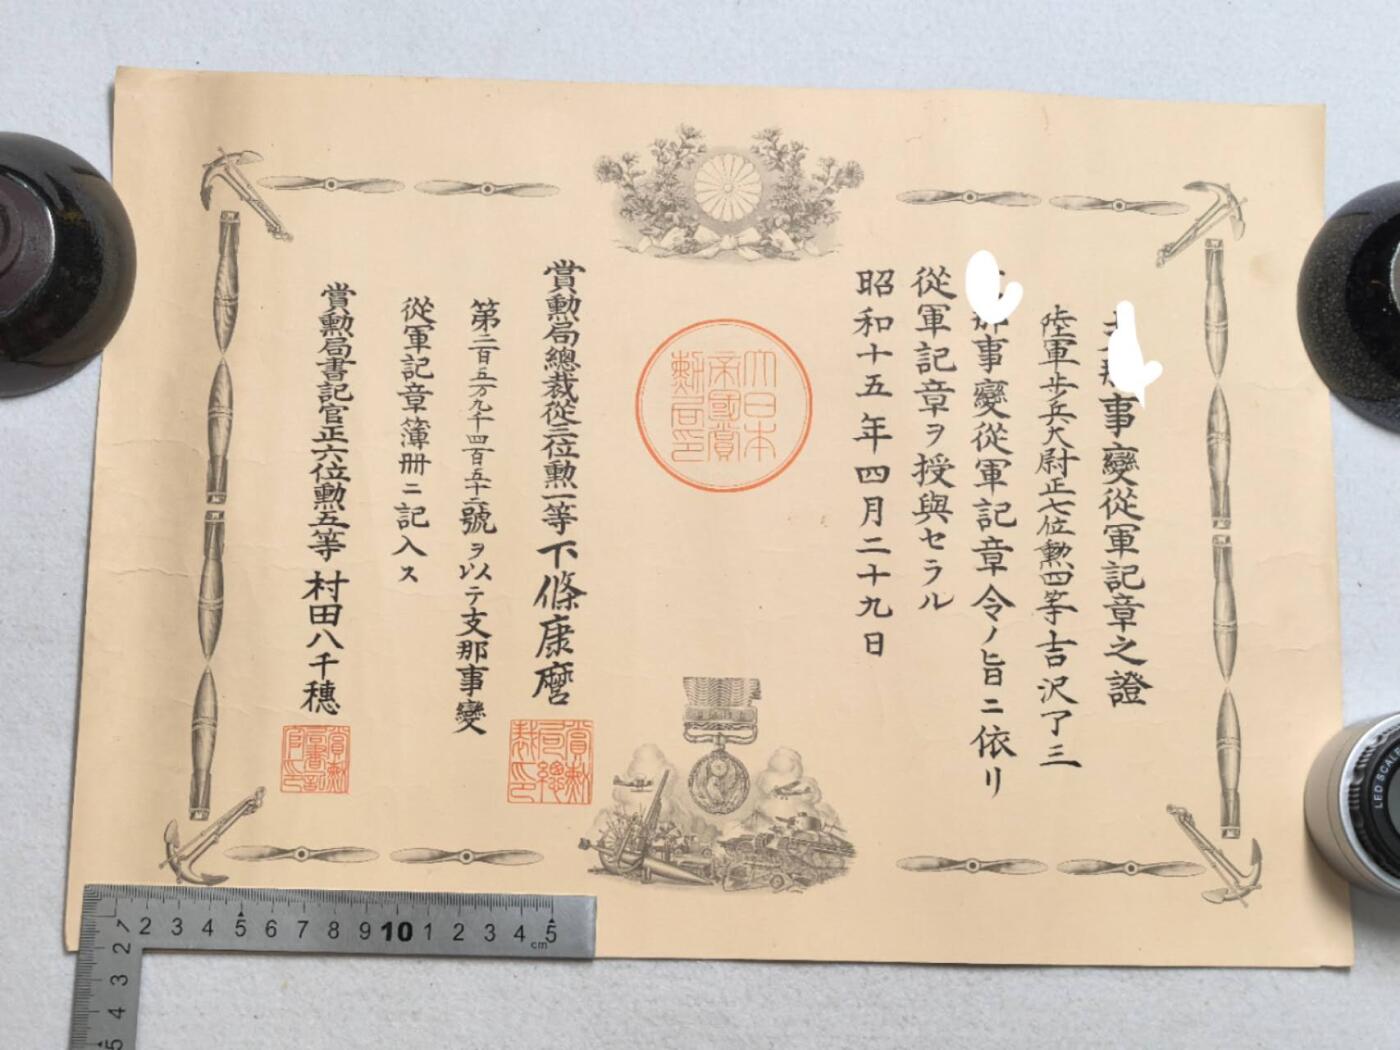 事變從軍記章之證
陸軍步兵大尉正七位勲四等吉沢了三
那事變從軍記章令ノ旨ニ依リ
從軍記章ヲ授與セラル
昭和十五年四月二十九日
大日本
帝國賞
勲局印
賞勲局總裁從三位勲一等下條康麿
賞勲
局總
裁印
第二百五万九千四百五十二號ヲ以テ支那事變
從軍記章簿冊ニ記入ス
賞勲局書記官正六位勲五等村田八千穗
賞勲
局書記
官印
2 3 4 5 6 7 8 9 10 1 2 3 4 5
cm
2 3 4 5
LED SCALE